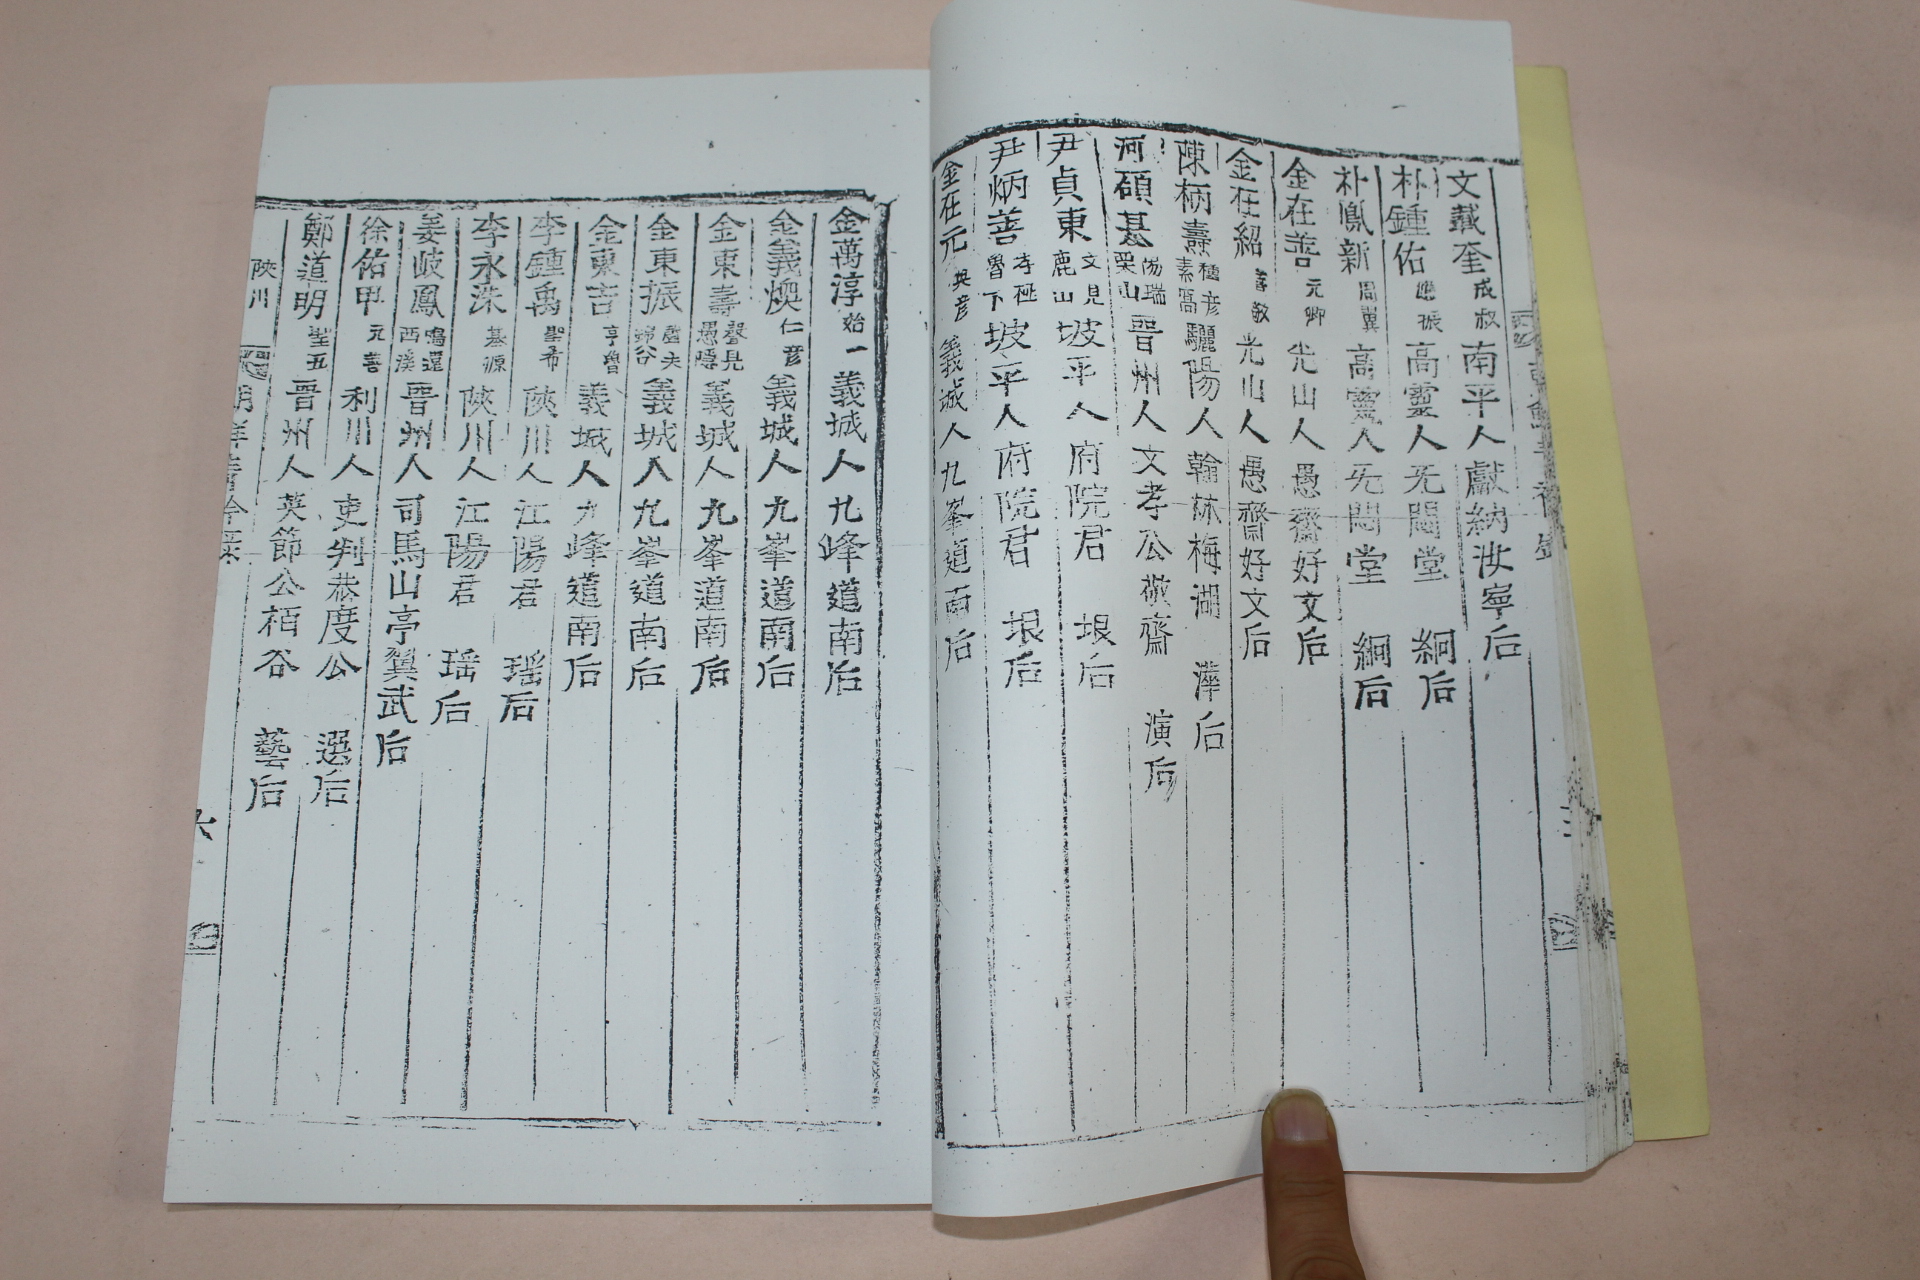 文載奎 成叔 南平人獻納汝寧后
朴鍾佑 振 高靈人旡悶堂 絅后
朴鳳新 周翼 高靈人旡悶堂 絅后
金在善 元卿 光山人愚齋好文后
金在紹 敬 光山人愚齋好文后
陳柄壽 彦 素窩 驪陽人翰林梅湖 澕后
河碩基 瑞 栗山 晋州人文孝公敬齋 演后
尹貞東 文見 鹿山 坡平人府院君 垠后
尹炳善 魯下 坡平人府院君 垠后
金在元 英彦 義城人九峯道南后
金萬淳 始一 義城人九峰道南后
金義煥 仁彦 義城人九峯道南后
金東壽 聲見 愚隱 義城人九峯道南后
金東振 盛夫 錦谷 義城人九峯道南后
金東吉 亨曾 義城人九峰道南后
李鍾禹 聖希 陜川人江陽君 瑶后
李永洙 基源 陜川人江陽君 瑶后
姜岐鳳 鳴還 西溪 晋州人司馬山亭翼武后
徐佑甲 元善 利川人吏判恭度公 選后
鄭道明 聖五 晋州人英節公栢谷 藝后
陜川
六